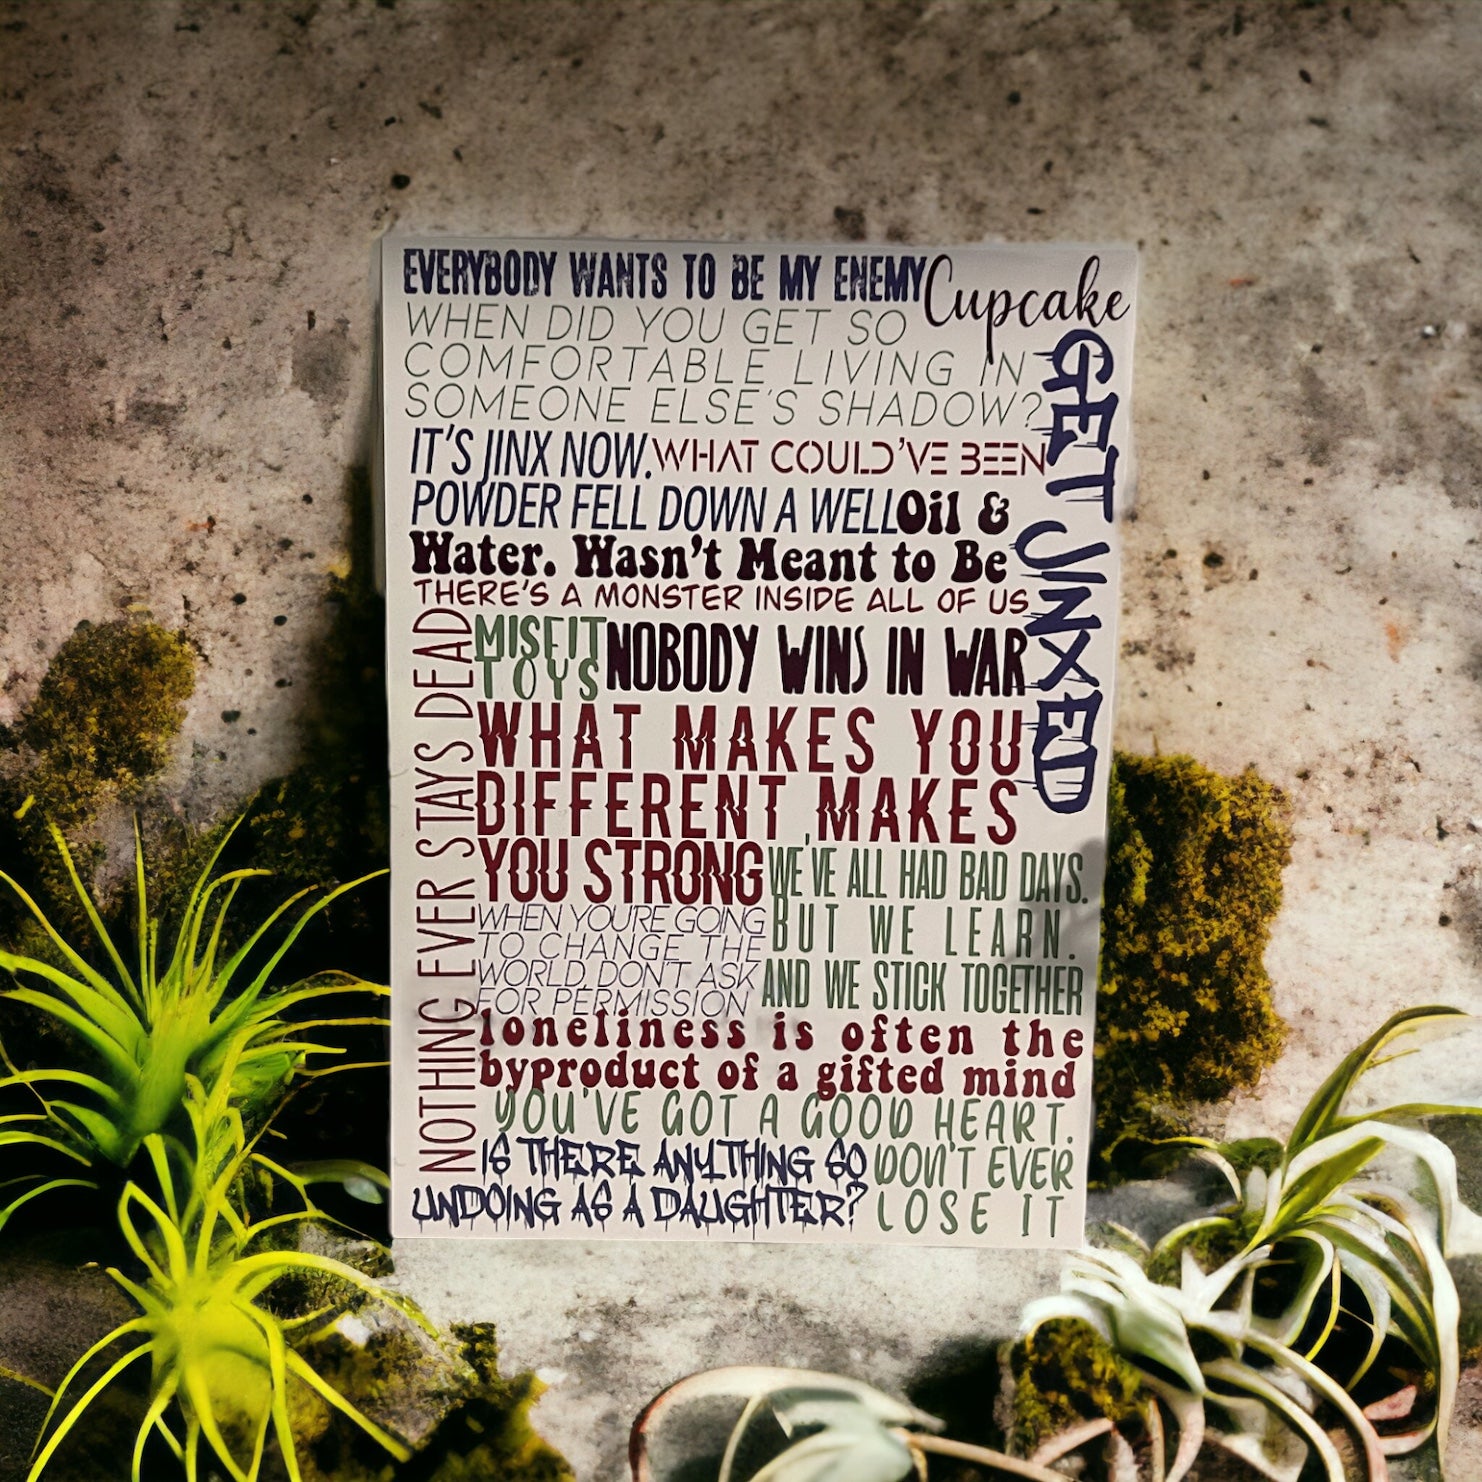 EVERYBODY WANTS TO BE MY ENEMY
Cupcake
WHEN DID YOU GET SO
COMFORTABLE LIVING IN
SOMEONE ELSE'S SHADOW?
GET JINXED
IT'S JINX NOW.
POWDER FELL DOWN A WELL
WHAT COULD'VE BEEN
Oil &
Water. Wasn't Meant to Be
THERE'S A MONSTER INSIDE ALL OF US
NOTHING EVER STAYS DEAD
MISFIT
TOYS
NOBODY WINS IN WAR
WHAT MAKES YOU
DIFFERENT, MAKES
YOU STRONG
WE'VE ALL HAD BAD DAYS.
BUT WE LEARN.
AND WE STICK TOGETHER
WHEN YOU'RE GOING
TO CHANGE THE
WORLD, DON'T ASK
FOR PERMISSION
loneliness is often the
byproduct of a gifted mind
YOU'VE GOT A GOOD HEART.
DON'T EVER
LOSE IT
IS THERE ANYTHING SO
UNDOING AS A DAUGHTER?